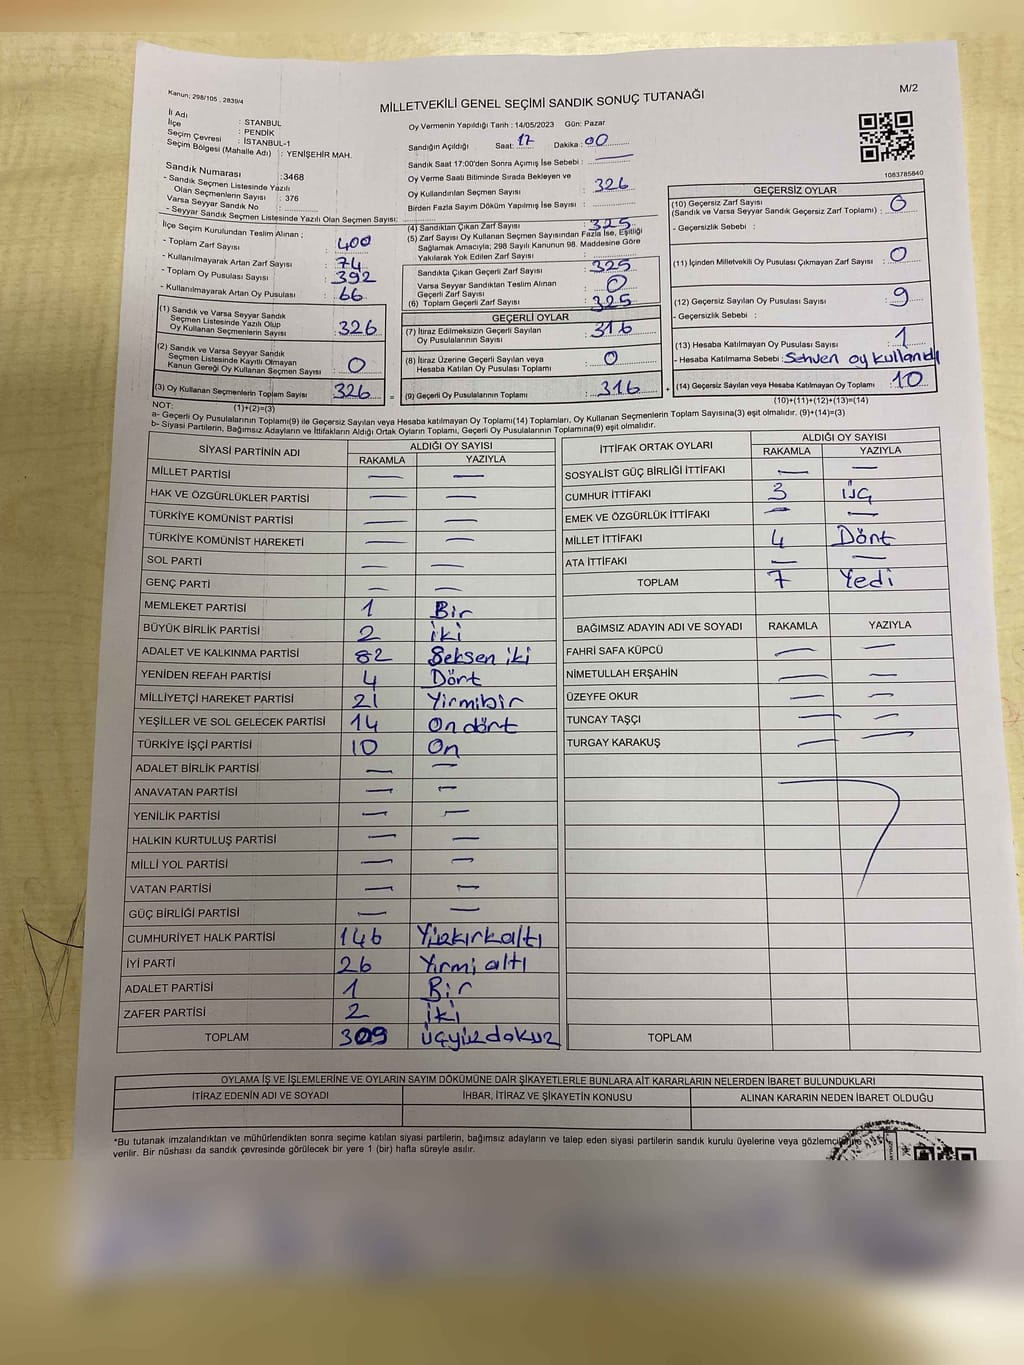 Kanun; 298/105 , 2839/4
MİLLETVEKİLİ GENEL SEÇİMİ SANDIK SONUÇ TUTANAĞI
M/2
İl Adı : STANBUL
İlçe : PENDİK
Seçim Çevresi : İSTANBUL-1
Seçim Bölgesi (Mahalle Adı) : YENİŞEHİR MAH.
Sandık Numarası : 3468
- Sandık Seçmen Listesinde Yazılı
Olan Seçmenlerin Sayısı : 376
Varsa Seyyar Sandık No :
- Seyyar Sandık Seçmen Listesinde Yazılı Olan Seçmen Sayısı:
Oy Vermenin Yapıldığı Tarih : 14/05/2023 Gün: Pazar
Sandığın Açıldığı Saat: 17 Dakika : 00
Sandık Saat 17:00'den Sonra Açımış İse Sebebi : —
Oy Verme Saati Bitiminde Sırada Bekleyen ve
Oy Kullandırılan Seçmen Sayısı : 326
Birden Fazla Sayım Döküm Yapılmış İse Sayısı :
1083785840
İlçe Seçim Kurulundan Teslim Alınan ;
- Toplam Zarf Sayısı : 400
- Kullanılmayarak Artan Zarf Sayısı : 74
- Toplam Oy Pusulası Sayısı : 392
- Kullanılmayarak Artan Oy Pusulası : 66
(1) Sandık ve Varsa Seyyar Sandık
Seçmen Listesinde Yazılı Olup
Oy Kullanan Seçmenlerin Sayısı : 326
(2) Sandık ve Varsa Seyyar Sandık
Seçmen Listesinde Kayıtlı Olmayan
Kanun Gereği Oy Kullanan Seçmen Sayısı : 0
(3) Oy Kullanan Seçmenlerin Toplam Sayısı : 326
(1)+(2)=(3)
(4) Sandıktan Çıkan Zarf Sayısı : 325
(5) Zarf Sayısı Oy Kullanan Seçmen Sayısından Fazla İse, Eşitliği
Sağlamak Amacıyla; 298 Sayılı Kanunun 98. Maddesine Göre
Yakılarak Yok Edilen Zarf Sayısı :
Sandıkta Çıkan Geçerli Zarf Sayısı : 325
Varsa Seyyar Sandıktan Teslim Alınan
Geçerli Zarf Sayısı : 0
(6) Toplam Geçerli Zarf Sayısı : 325
GEÇERLİ OYLAR
(7) İtiraz Edilmeksizin Geçerli Sayılan
Oy Pusulalarının Sayısı : 316
(8) İtiraz Üzerine Geçerli Sayılan veya
Hesaba Katılan Oy Pusulası Toplamı : 0
= (9) Geçerli Oy Pusulalarının Toplamı : 316
GEÇERSİZ OYLAR
(10) Geçersiz Zarf Sayısı
(Sandık ve Varsa Seyyar Sandık Geçersiz Zarf Toplamı) : 0
- Geçersizlik Sebebi :
(11) İçinden Milletvekili Oy Pusulası Çıkmayan Zarf Sayısı : 0
(12) Geçersiz Sayılan Oy Pusulası Sayısı : 9
- Geçersizlik Sebebi :
(13) Hesaba Katılmayan Oy Pusulası Sayısı : 1
- Hesaba Katılmama Sebebi : Sehven oy kullandı
+ (14) Geçersiz Sayılan veya Hesaba Katılmayan Oy Toplamı : 10
(10)+(11)+(12)+(13)=(14)
NOT:
a- Geçerli Oy Pusulalarının Toplamı(9) ile Geçersiz Sayılan veya Hesaba katılmayan Oy Toplamı(14) Toplamları, Oy Kullanan Seçmenlerin Toplam Sayısına(3) eşit olmalıdır. (9)+(14)=(3)
b- Siyasi Partilerin, Bağımsız Adayların ve İttifakların Aldığı Ortak Oyların Toplamı, Geçerli Oy Pusulalarının Toplamına(9) eşit olmalıdır.
SİYASİ PARTİNİN ADI ALDIĞI OY SAYISI
RAKAMLA YAZIYLA
MİLLET PARTİSİ — —
HAK VE ÖZGÜRLÜKLER PARTİSİ — —
TÜRKİYE KOMÜNİST PARTİSİ — —
TÜRKİYE KOMÜNİST HAREKETİ — —
SOL PARTİ — —
GENÇ PARTİ — —
MEMLEKET PARTİSİ 1 Bir
BÜYÜK BİRLİK PARTİSİ 2 iki
ADALET VE KALKINMA PARTİSİ 82 Seksen iki
YENİDEN REFAH PARTİSİ 4 Dört
MİLLİYETÇİ HAREKET PARTİSİ 21 Yirmibir
YEŞİLLER VE SOL GELECEK PARTİSİ 14 On dört
TÜRKİYE İŞÇİ PARTİSİ 10 On
ADALET BİRLİK PARTİSİ — —
ANAVATAN PARTİSİ — —
YENİLİK PARTİSİ — —
HALKIN KURTULUŞ PARTİSİ — —
MİLLİ YOL PARTİSİ — —
VATAN PARTİSİ — —
GÜÇ BİRLİĞİ PARTİSİ — —
CUMHURİYET HALK PARTİSİ 146 Yüzkırkaltı
İYİ PARTİ 26 Yirmi altı
ADALET PARTİSİ 1 Bir
ZAFER PARTİSİ 2 iki
TOPLAM 309 üçyüzdokuz
İTTİFAK ORTAK OYLARI ALDIĞI OY SAYISI
RAKAMLA YAZIYLA
SOSYALİST GÜÇ BİRLİĞİ İTTİFAKI — —
CUMHUR İTTİFAKI 3 üç
EMEK VE ÖZGÜRLÜK İTTİFAKI — —
MİLLET İTTİFAKI 4 Dört
ATA İTTİFAKI — —
TOPLAM 7 Yedi
BAĞIMSIZ ADAYIN ADI VE SOYADI RAKAMLA YAZIYLA
FAHRİ SAFA KÜPCÜ — —
NİMETULLAH ERŞAHİN — —
ÜZEYFE OKUR — —
TUNCAY TAŞÇI — —
TURGAY KARAKUŞ — —
TOPLAM
OYLAMA İŞ VE İŞLEMLERİNE VE OYLARIN SAYIM DÖKÜMÜNE DAİR ŞİKAYETLERLE BUNLARA AİT KARARLARIN NELERDEN İBARET BULUNDUKLARI
İTİRAZ EDENİN ADI VE SOYADI İHBAR, İTİRAZ VE ŞİKAYETİN KONUSU ALINAN KARARIN NEDEN İBARET OLDUĞU
*Bu tutanak imzalandıktan ve mühürlendikten sonra seçime katılan siyasi partilerin, bağımsız adayların ve talep eden siyasi partilerin sandık kurulu üyelerine veya gözlemcilerine
verilir. Bir nüshası da sandık çevresinde görülecek bir yere 1 (bir) hafta süreyle asılır.